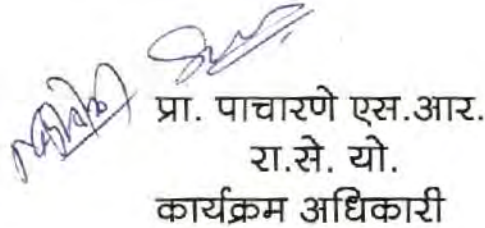 प्रा. पाचारणे एस.आर.
रा.से. यो.
कार्यक्रम अधिकारी